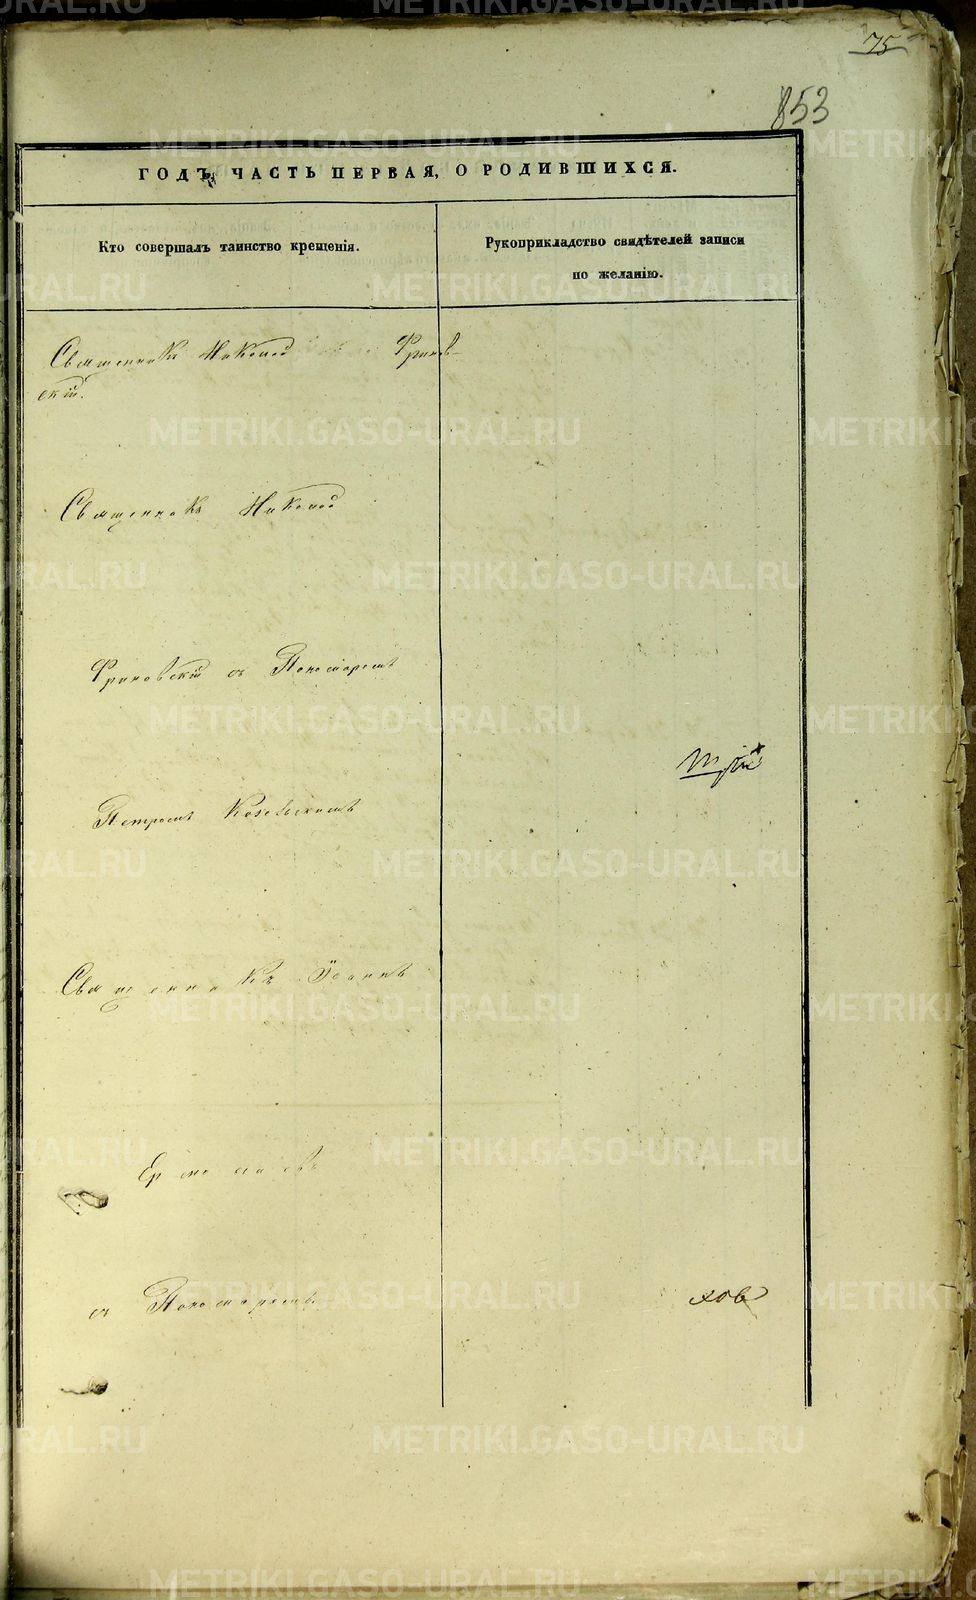 75
853
ГОДЪ, ЧАСТЬ ПЕРВАЯ, О РОДИВШИХСЯ.
Кто совершалъ таинство крещенія.
Рукоприкладство свидѣтелей записи
по желанію.
Священникъ Никонъ Фринов-
скій.
Священникъ Никонъ
Фриновскій съ Пономаремъ
Петромъ Козельскимъ
Священникъ Іоаннъ
съ Пономаремъ
ховъ
METRIKI.GASO-URAL.RU